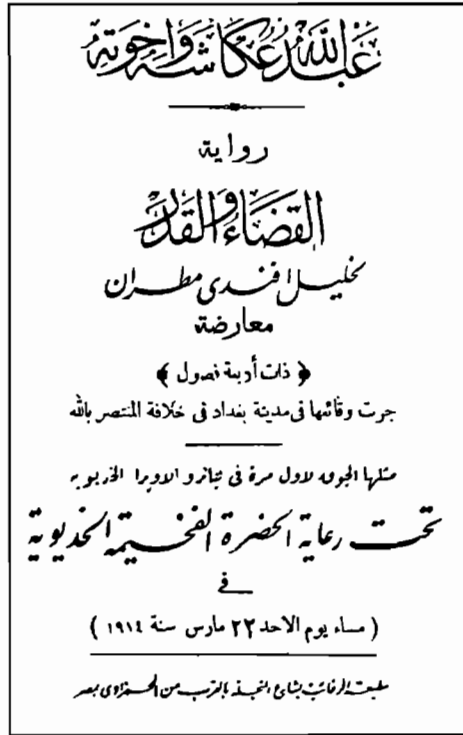 عبد الله عكاشه وإخوته
رواية
القضاء والقدر
لخليل افندى مطران
معارضة
﴿ ذات أربعة فصول ﴾
جرت وقائعها فى مدينة بغداد فى خلافة المنتصر بالله
مثلها الجوق لاول مرة فى تياترو الاوبرا الخديويه
تحت رعاية الحضرة الفخيمة الخديوية
في
( مساء يوم الاحد ٢٢ مارس سنة ١٩١٤ )
مطبعة الرغائب بشارع النجاله بالقرب من الحمزاوى بمصر